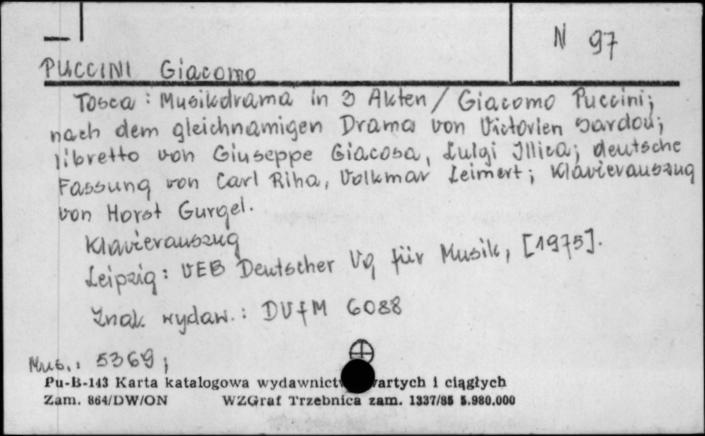 N 97
PUCCINI Giacomo
Tosca : Musikdrama in 3 Akten / Giacomo Puccini;
nach dem gleichnamigen Drama von Victorien Sardou;
libretto von Giuseppe Giacosa, Luigi Illica; deutsche
Fassung von Carl Riha, Volkmar Leimert; Klavierauszug
von Horst Gurgel.
Klavierauszug
Leipzig : VEB Deutscher Vg für Musik, [1975].
Znak wydaw. : DVfM 6088
Mus. : 5369 ;
Pu-B-143 Karta katalogowa wydawnictw wartych i ciągłych
Zam. 864/DW/ON WZGraf Trzebnica zam. 1337/85 5.980.000